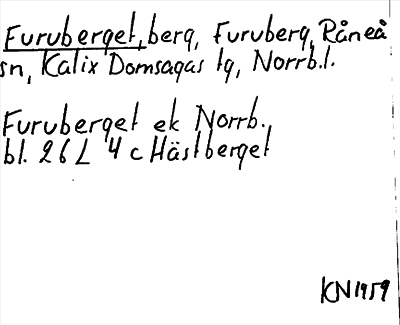 Furuberget, berg, Furuberg, Råneå
sn, Kalix Domsagas tg, Norrb.l.
Furuberget ek Norrb.
bl. 26 L 4 c Hästberget
KN 1959